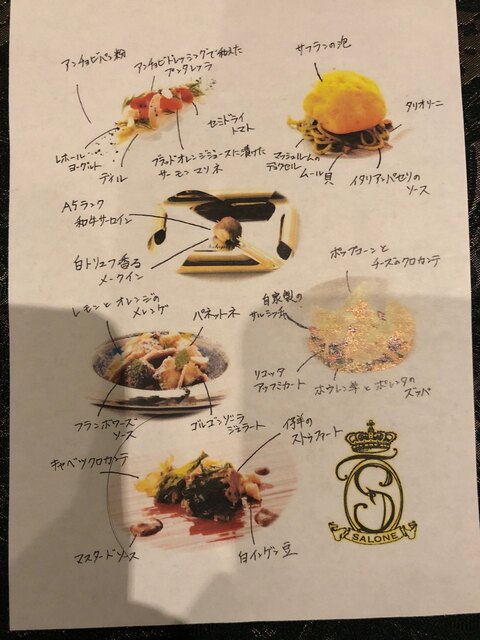 アンチョビパン粉
アンチョビドレッシングで和えた
プンタレッラ
セミドライ
トマト
レホール
ヨーグルト
ディル
ブラッドオレンジジュースに漬けた
サーモンマリネ
サフランの泡
タリオリーニ
マッシュルームの
デュクセル
ムール貝
イタリアンパセリの
ソース
A5ランク
和牛サーロイン
白トリュフ香る
メークイン
ポップコーンと
チーズのクロカンテ
自家製の
サルシッチャ
リコッタ
アッフミカート
ホウレン草とポレンタの
ズッパ
レモンとオレンジの
メレンゲ
パネットーネ
フランボワーズ
ソース
ゴルゴンゾーラ
ジェラート
仔羊の
ストラコート
キャベツクロカンテ
マスタードソース
白インゲン豆
SALONE